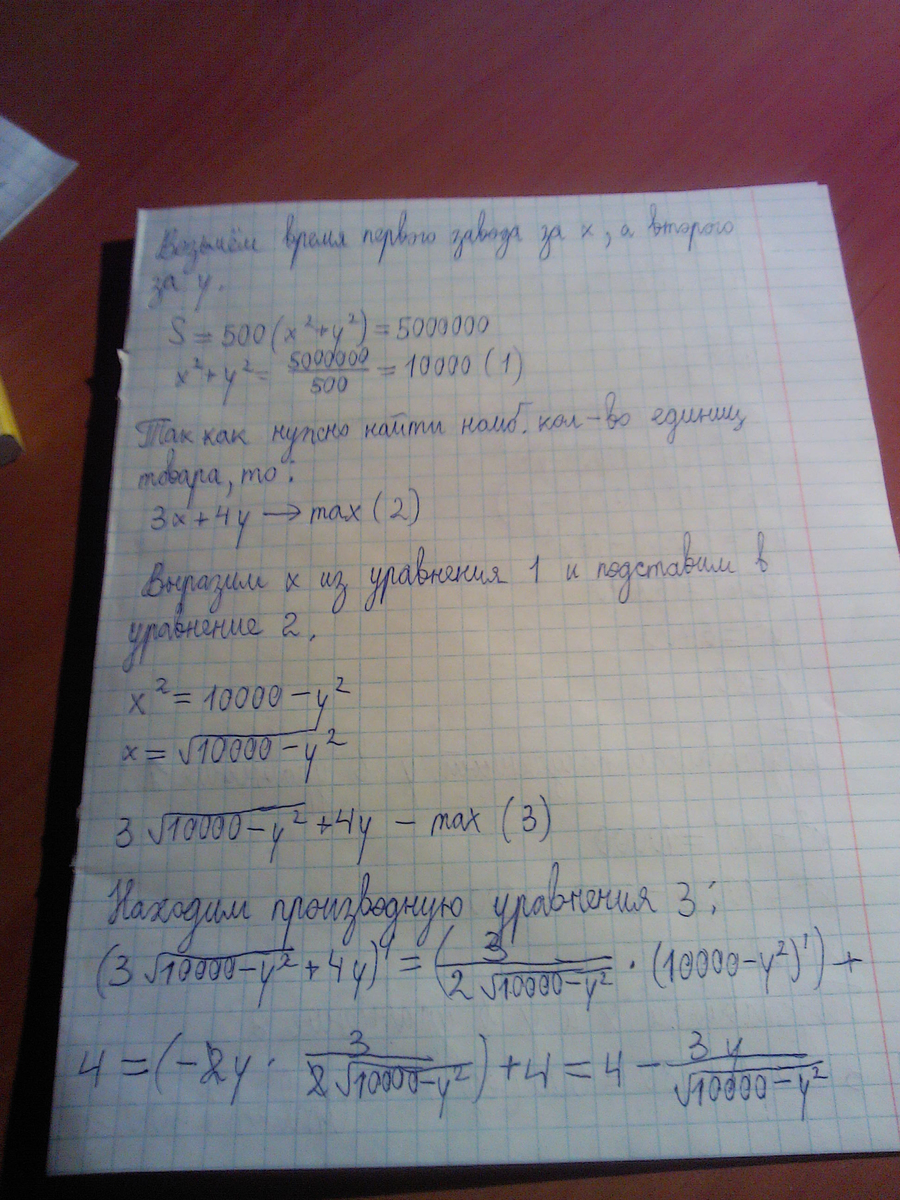 Возьмём время первого завода за x, а второго
за y.
S = 500(x²+y²) = 5000000
x²+y² = 5000000/500 = 10000 (1)
Так как нужно найти наиб. кол-во единиц
товара, то:
3x+4y → max (2)
Выразим x из уравнения 1 и подставим в
уравнение 2.
x² = 10000 – y²
x = √(10000 – y²)
3√(10000 – y²) + 4y – max (3)
Находим производную уравнения 3:
(3√(10000 – y²) + 4y)' = (3/(2√(10000 – y²)) · (10000 – y²)') +
4 = (–2y · 3/(2√(10000 – y²))) + 4 = 4 – 3y/√(10000 – y²)